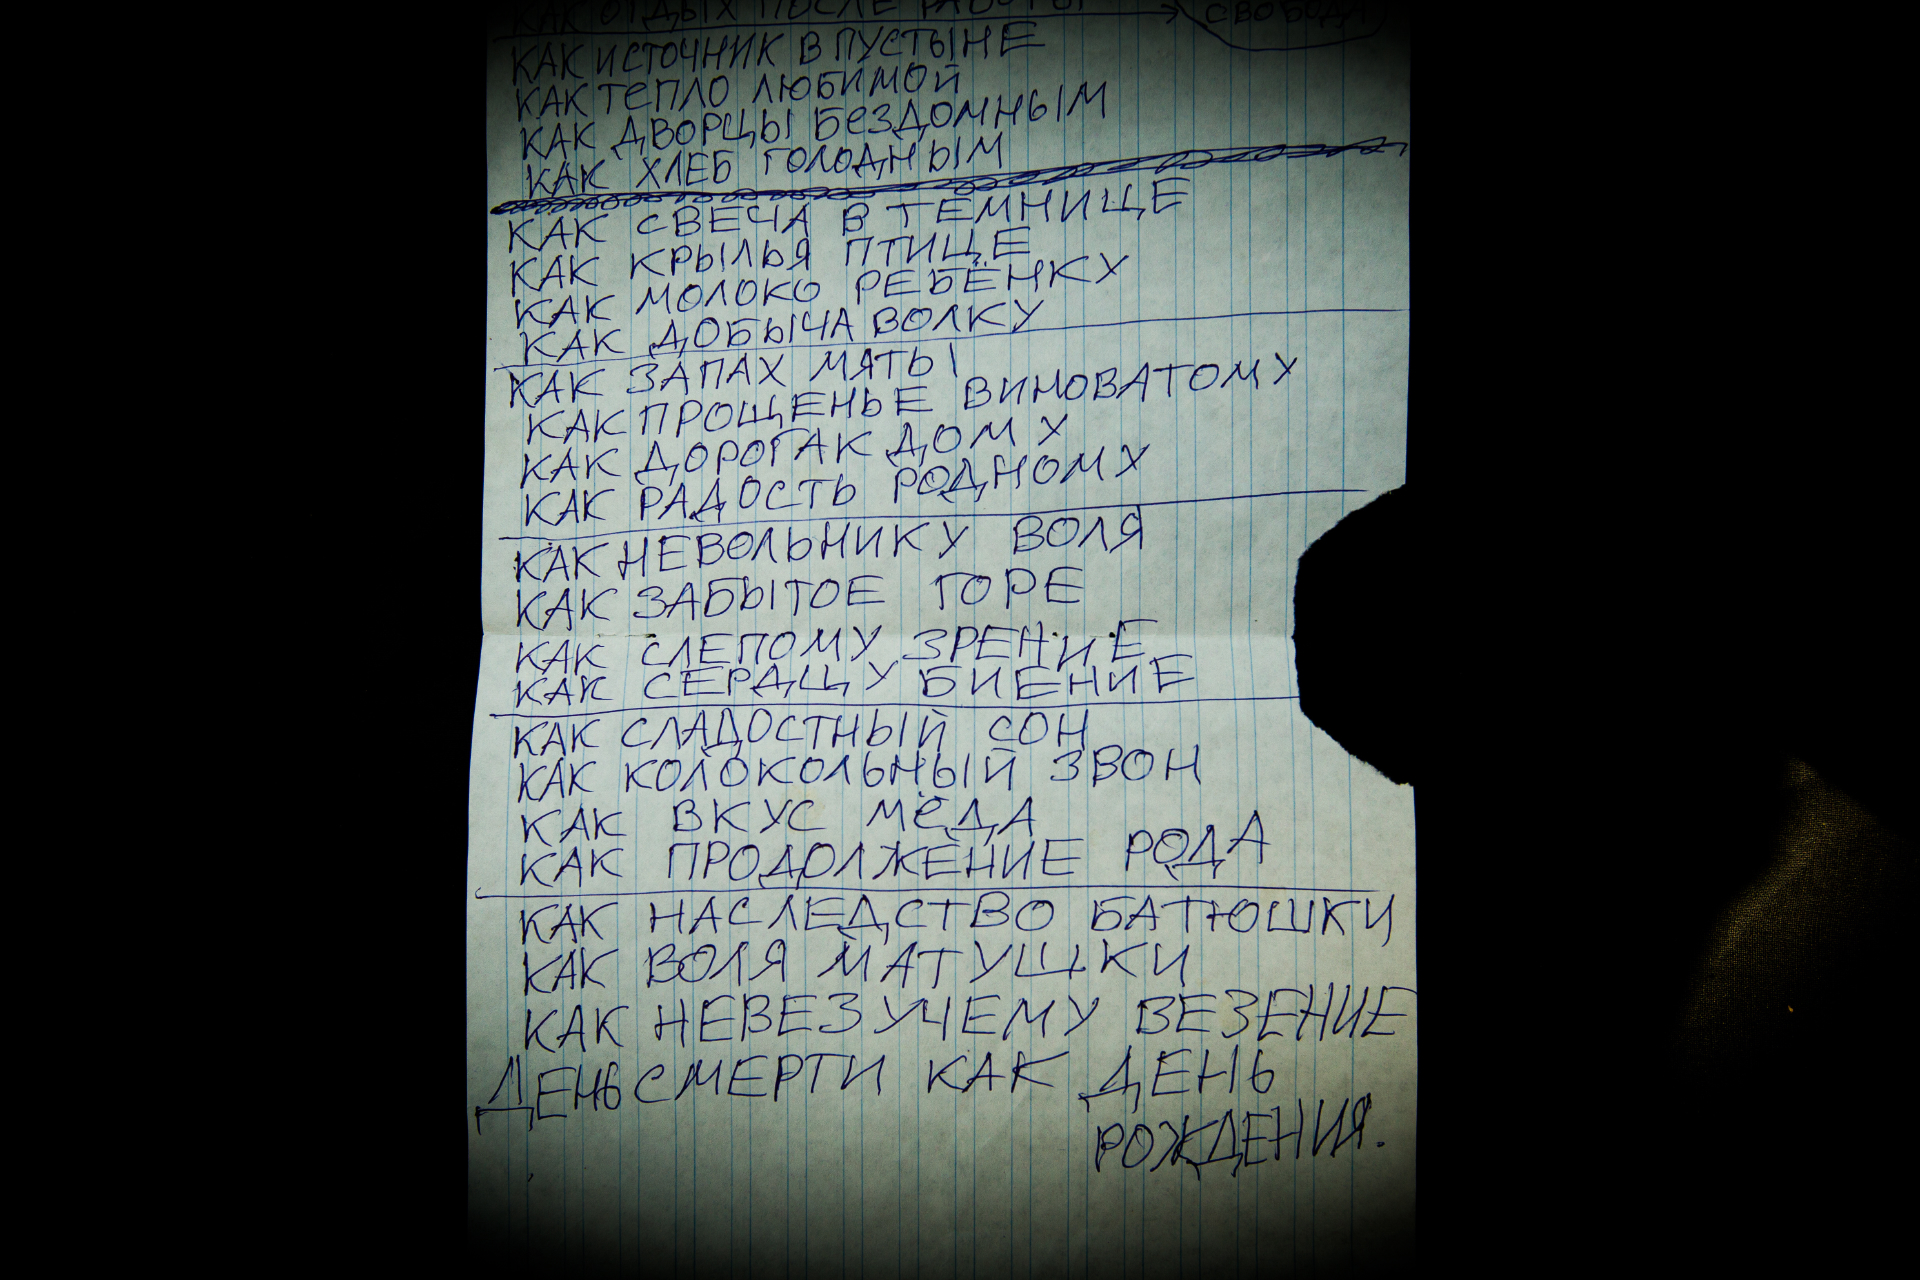 КАК ОТДЫХ ПОСЛЕ РАБОТЫ → СВОБОДА
КАК ИСТОЧНИК В ПУСТЫНЕ
КАК ТЕПЛО ЛЮБИМОЙ
КАК ДВОРЦЫ БЕЗДОМНЫМ
КАК ХЛЕБ ГОЛОДНЫМ
КАК СВЕЧА В ТЕМНИЦЕ
КАК КРЫЛЬЯ ПТИЦЕ
КАК МОЛОКО РЕБЁНКУ
КАК ДОБЫЧА ВОЛКУ
КАК ЗАПАХ МЯТЫ
КАК ПРОЩЕНЬЕ ВИНОВАТОМУ
КАК ДОРОГА К ДОМУ
КАК РАДОСТЬ РОДНОМУ
КАК НЕВОЛЬНИКУ ВОЛЯ
КАК ЗАБЫТОЕ ГОРЕ
КАК СЛЕПОМУ ЗРЕНИЕ
КАК СЕРДЦУ БИЕНИЕ
КАК СЛАДОСТНЫЙ СОН
КАК КОЛОКОЛЬНЫЙ ЗВОН
КАК ВКУС МЁДА
КАК ПРОДОЛЖЕНИЕ РОДА
КАК НАСЛЕДСТВО БАТЮШКИ
КАК ВОЛЯ МАТУШКИ
КАК НЕВЕЗУЧЕМУ ВЕЗЕНИЕ
ДЕНЬ СМЕРТИ КАК ДЕНЬ
РОЖДЕНИЯ.